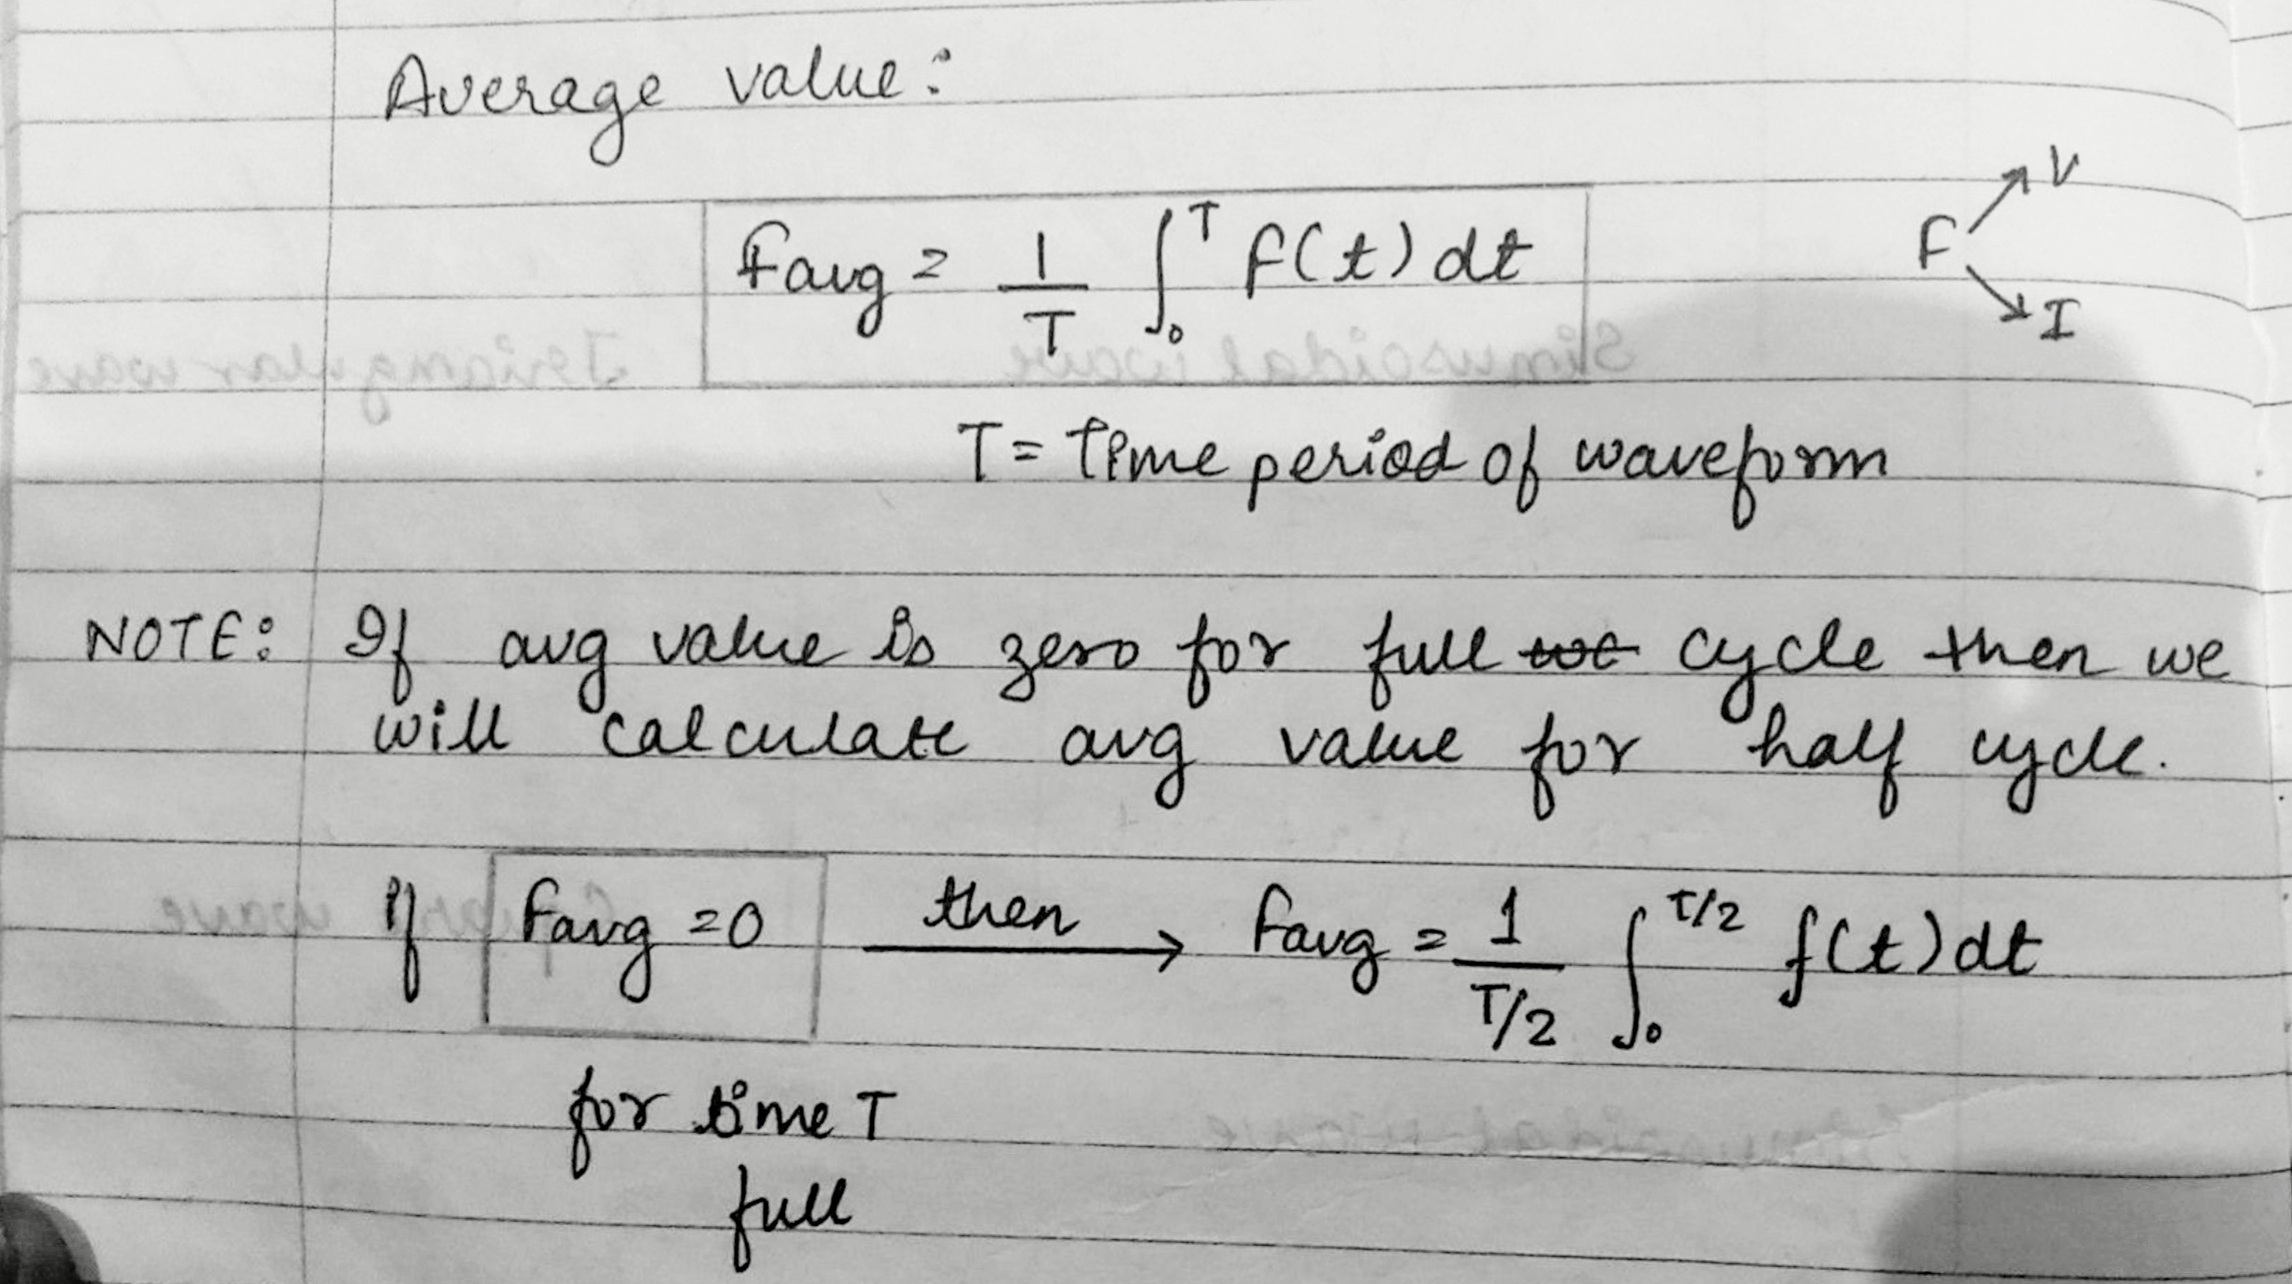 Average value:
Favg = 1/T ∫₀ᵀ F(t) dt
F → V
→ I
T = Time period of waveform
NOTE: If avg value is zero for full cycle then we
will calculate avg value for half cycle.
If Favg = 0 then → Favg = 1/(T/2) ∫₀^(T/2) f(t) dt
for time T
full